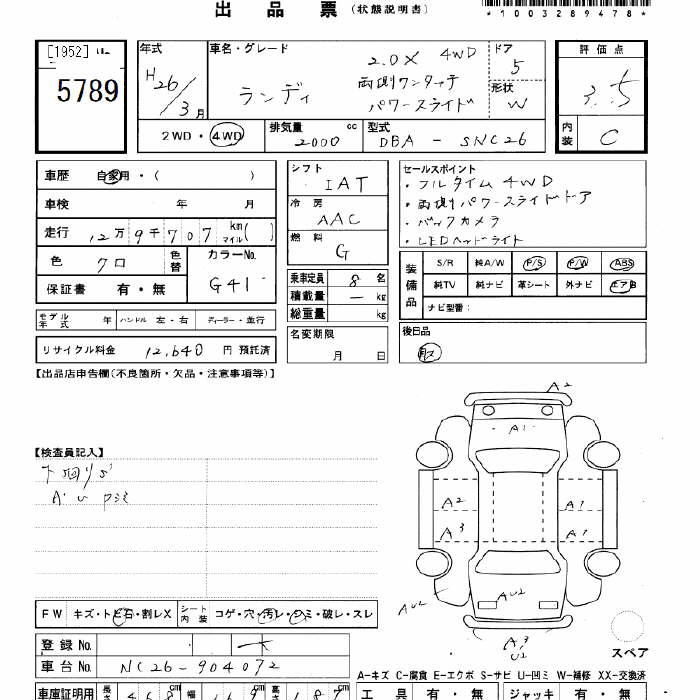 出品票(状態説明書)
*1003289478*
[1952]
5789
年式 H26/3月
車名・グレード ランディ 2.0X 4WD
両側ワンタッチ
パワースライド
ドア 5
形状 W
評価点 3.5
内装 C
2WD・4WD
排気量 2000 cc
型式 DBA-SNC26
車歴 自家用・( )
車検 年 月
走行 12万9千707 kmマイル( )
色 クロ 色替 カラーNo. G41
保証書 有・無
シフト IAT
冷房 AAC
燃料 G
乗車定員 8名
積載量 - kg
総重量 kg
セールスポイント
・フルタイム4WD
・両側パワースライドドア
・バックカメラ
・LEDヘッドライト
装備品 S/R 純A/W P/S P/W ABS
純TV 純ナビ 革シート 外ナビ エアB
ナビ型番:
モデル年式 年 ハンドル 左・右 ディーラー・走行
リサイクル料金 12,640 円 預託済
名変期限 月 日
後日品
【出品店申告欄(不良箇所・欠品・注意事項等)】
【検査員記入】
A2
A1
A2
A3
A1
A1
AU2
AU2
A3
U2
スペア
FW キズ・トビ石・割レX シート内装 コゲ・穴・汚レ・シミ・破レ・スレ
登録No.
車台No. NC26-904072
A-キズ C-腐食 E-エクボ S-サビ U-凹ミ W-補修 XX-交換済
車庫証明用 長さ 468 cm 幅 169 cm 高さ 187 cm
工具 有・無 ジャッキ 有・無